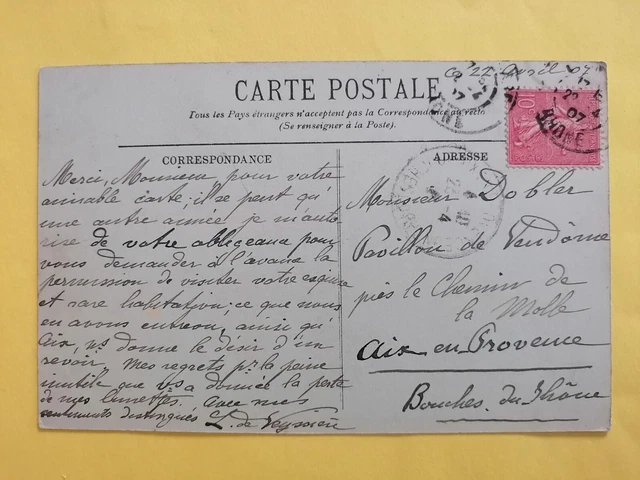 ce 22 avril 07
CARTE POSTALE
Tous les Pays étrangers n'acceptent pas la Correspondance au recto
(Se renseigner à la Poste).
CORRESPONDANCE
ADRESSE
Merci, Monsieur, pour votre
aimable carte; il se peut qu'
une autre année je m'auto
rise de votre pour
vous demander à l'avance la
permission de visiter votre
et rare habitation; ce que nous
en avons entrevu, ainsi qu'
Aix, ns donne le désir d'un
revoir. Mes regrets pr la peine
inutile que vs a donnée la perte
de mes lunettes. avec mes
sentiments distingués L. de
Monsieur Dobler
Pavillon de Vendôme
près le Chemin de
la Molle
Aix en Provence
Bouches du Rhône
10